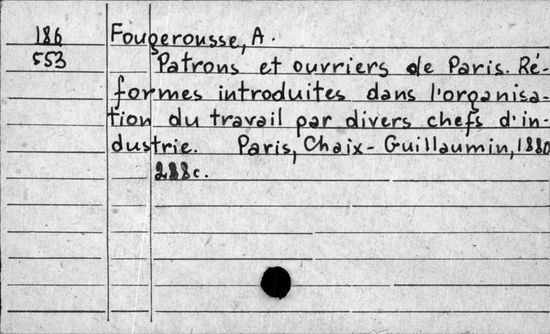 186
553
Fougerousse, A.
Patrons et ouvriers de Paris. Ré-
formes introduites dans l'organisa-
tion du travail par divers chefs d'in-
dustrie. Paris, Chaix-Guillaumin, 1880
288c.